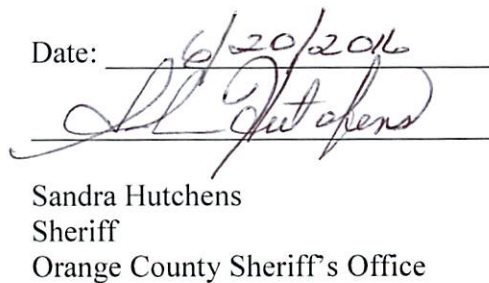 Date: 6/20/2016
S Hutchens
Sandra Hutchens
Sheriff
Orange County Sheriff's Office